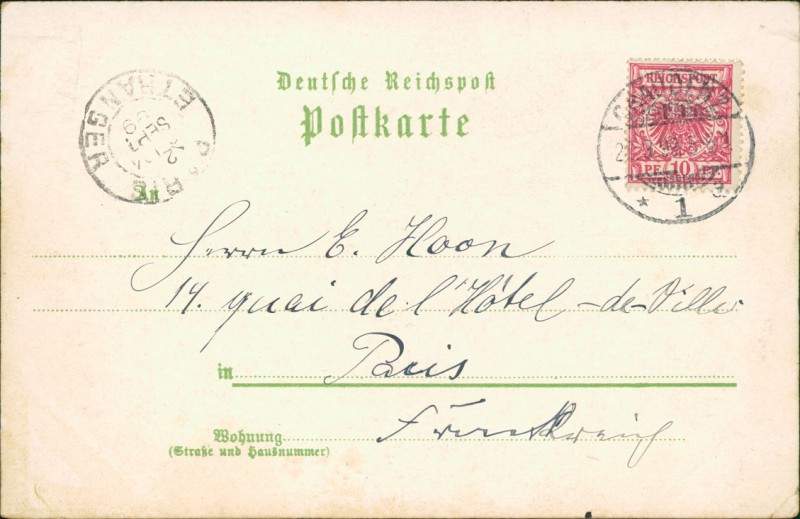 Deutsche Reichspost
Postkarte
PARIS
ETRANGER
SEPT
REICHSPOST
PF. 10 PF.
* 1
An
Herrn E. Hoon
14. quai de l'Hôtel-de-Ville
in Paris
Frankreich
Wohnung
(Straße und Hausnummer)